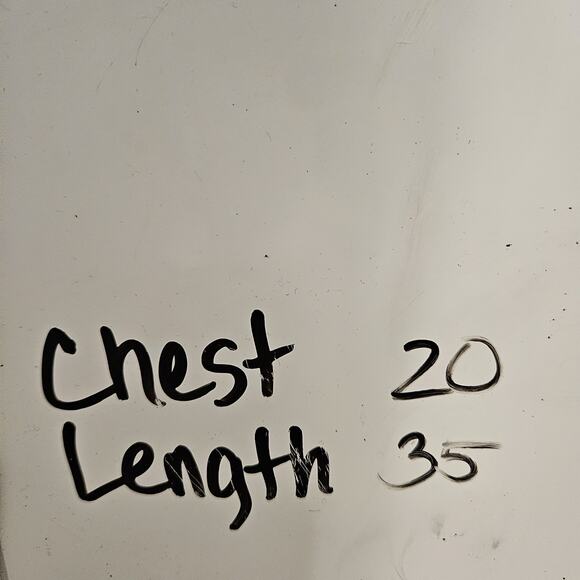 Chest 20
Length 35